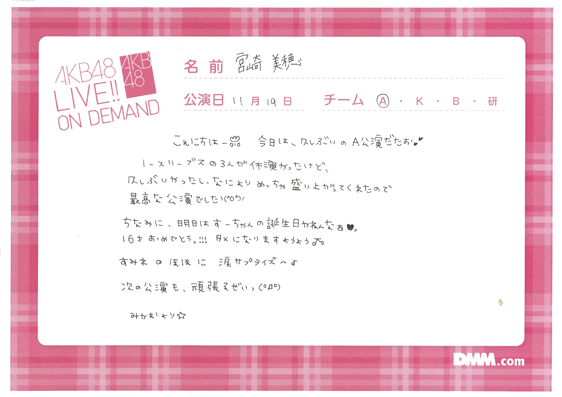 AKB48
LIVE!!
ON DEMAND
AKB
48
名前 宮崎 美穂
公演日 11月19日 チーム A・K・B・研
こんにちはー 今日は、久しぶりのA公演だたお
ノースリーブスの3人が休演だったけど、
久しぶりだったし、なによりめっちゃ盛り上がってくれたので
最高な公演でした\(^o^)/
ちなみに、明日はすーちゃんの誕生日だねんなぁ♥。
16さぃおめでとう。!!!
すみれ
涙サプライズ〜♪
次の公演も、頑張るぜぃっ(^o^)
みゃおより☆
DMM.com